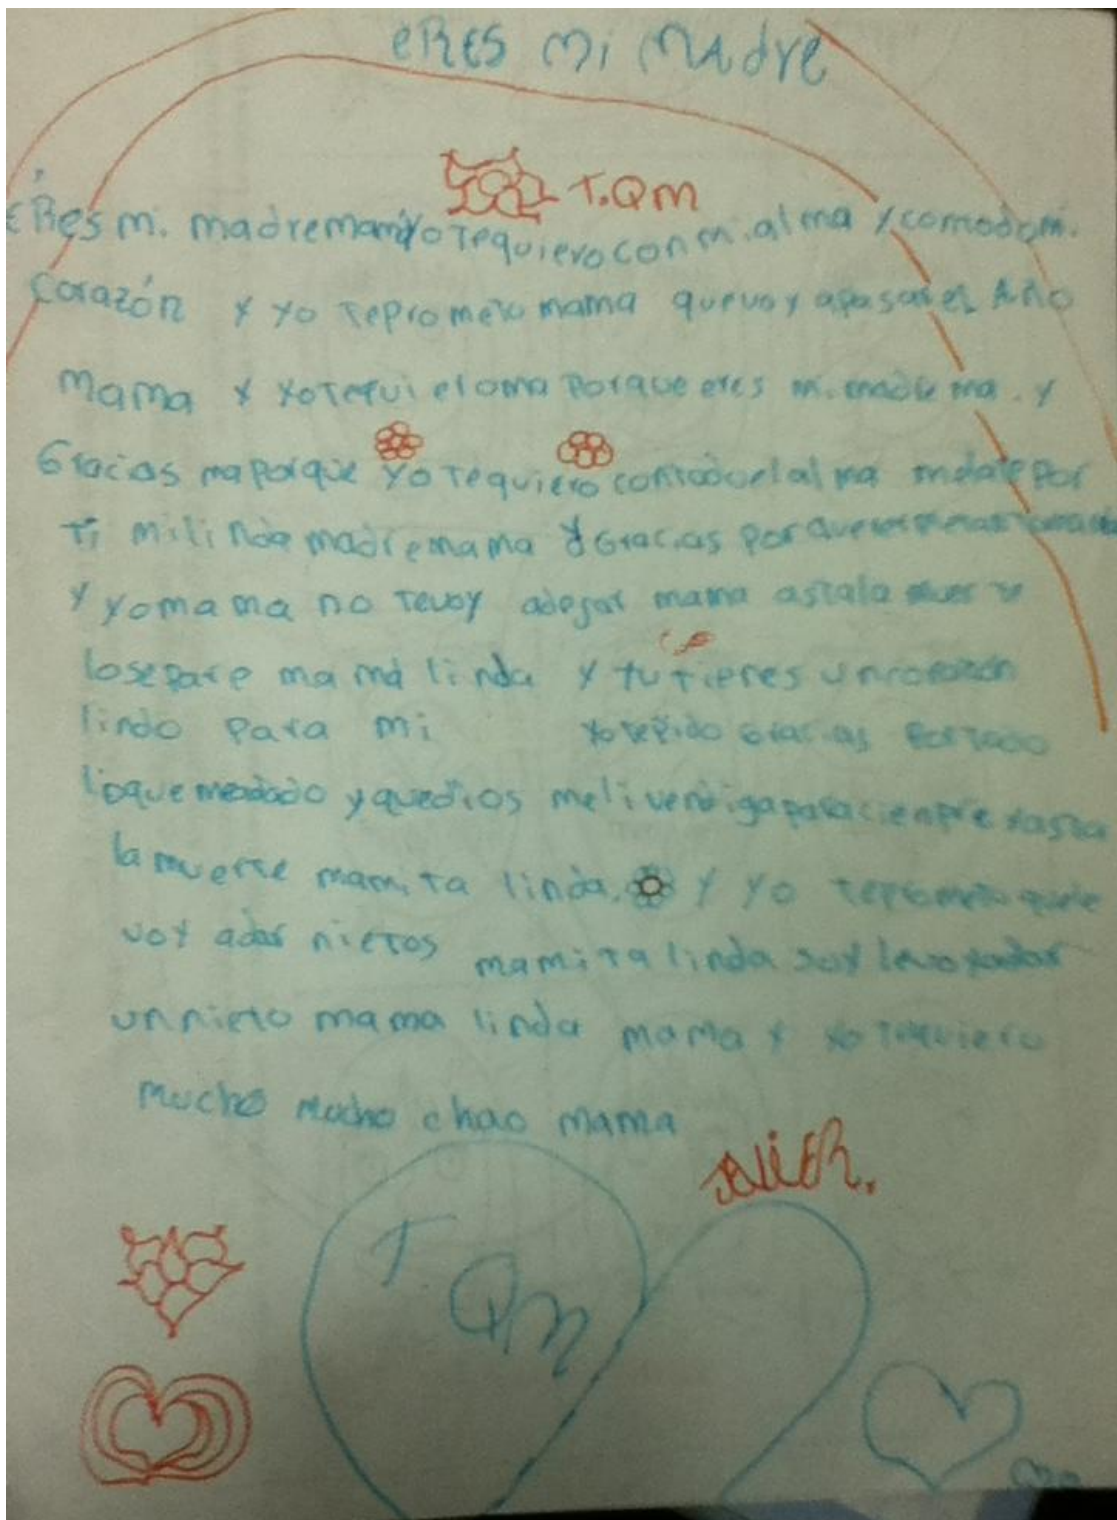 eRes mi madre
T.QM
eRes mi madre mami yo te quiero con mi alma y como do mi
corazón y yo teprometo mama quevoy apasar el Año
mama y yotequieroma porque eres mi madre ma y
Gracias maporque yo tequiero contodoel alma por
Ti mi linda madre mama y Gracias porque
y yomama no tevoy adejar mama astala muerte
losepare mamá linda y tu tienes uncorazon
lindo para mi yo tepido Gracias portodo
loquemeadado yquedios meliverdigaparacienpre yasta
la muerte mamita linda. y yo teprometo quele
voy adar nietos mamita linda soy levoyadar
un nieto mama linda mama y yo tequiero
mucho mucho chao mama
JAViER.
T
QM